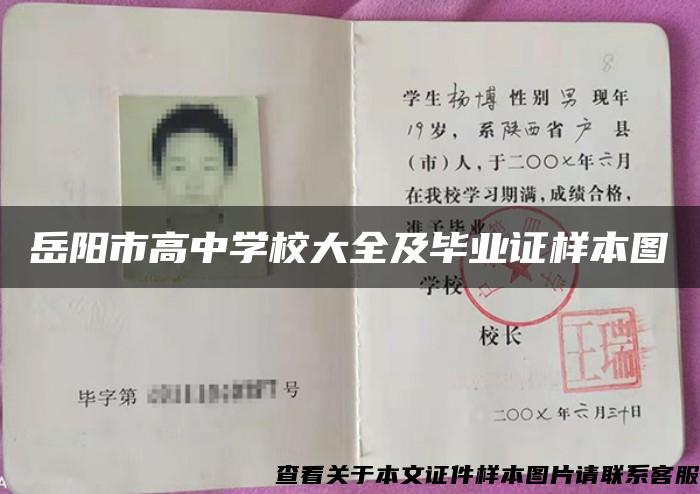 8
学生杨博性别男现年
19岁，系陕西省户县
(市)人，于二〇〇七年六月
在我校学习期满，成绩合格，
准予毕业
岳阳市高中学校大全及毕业证样本图
学校
校长
毕字第
号
二〇〇七年六月三十日
查看关于本文证件样本图片请联系客服